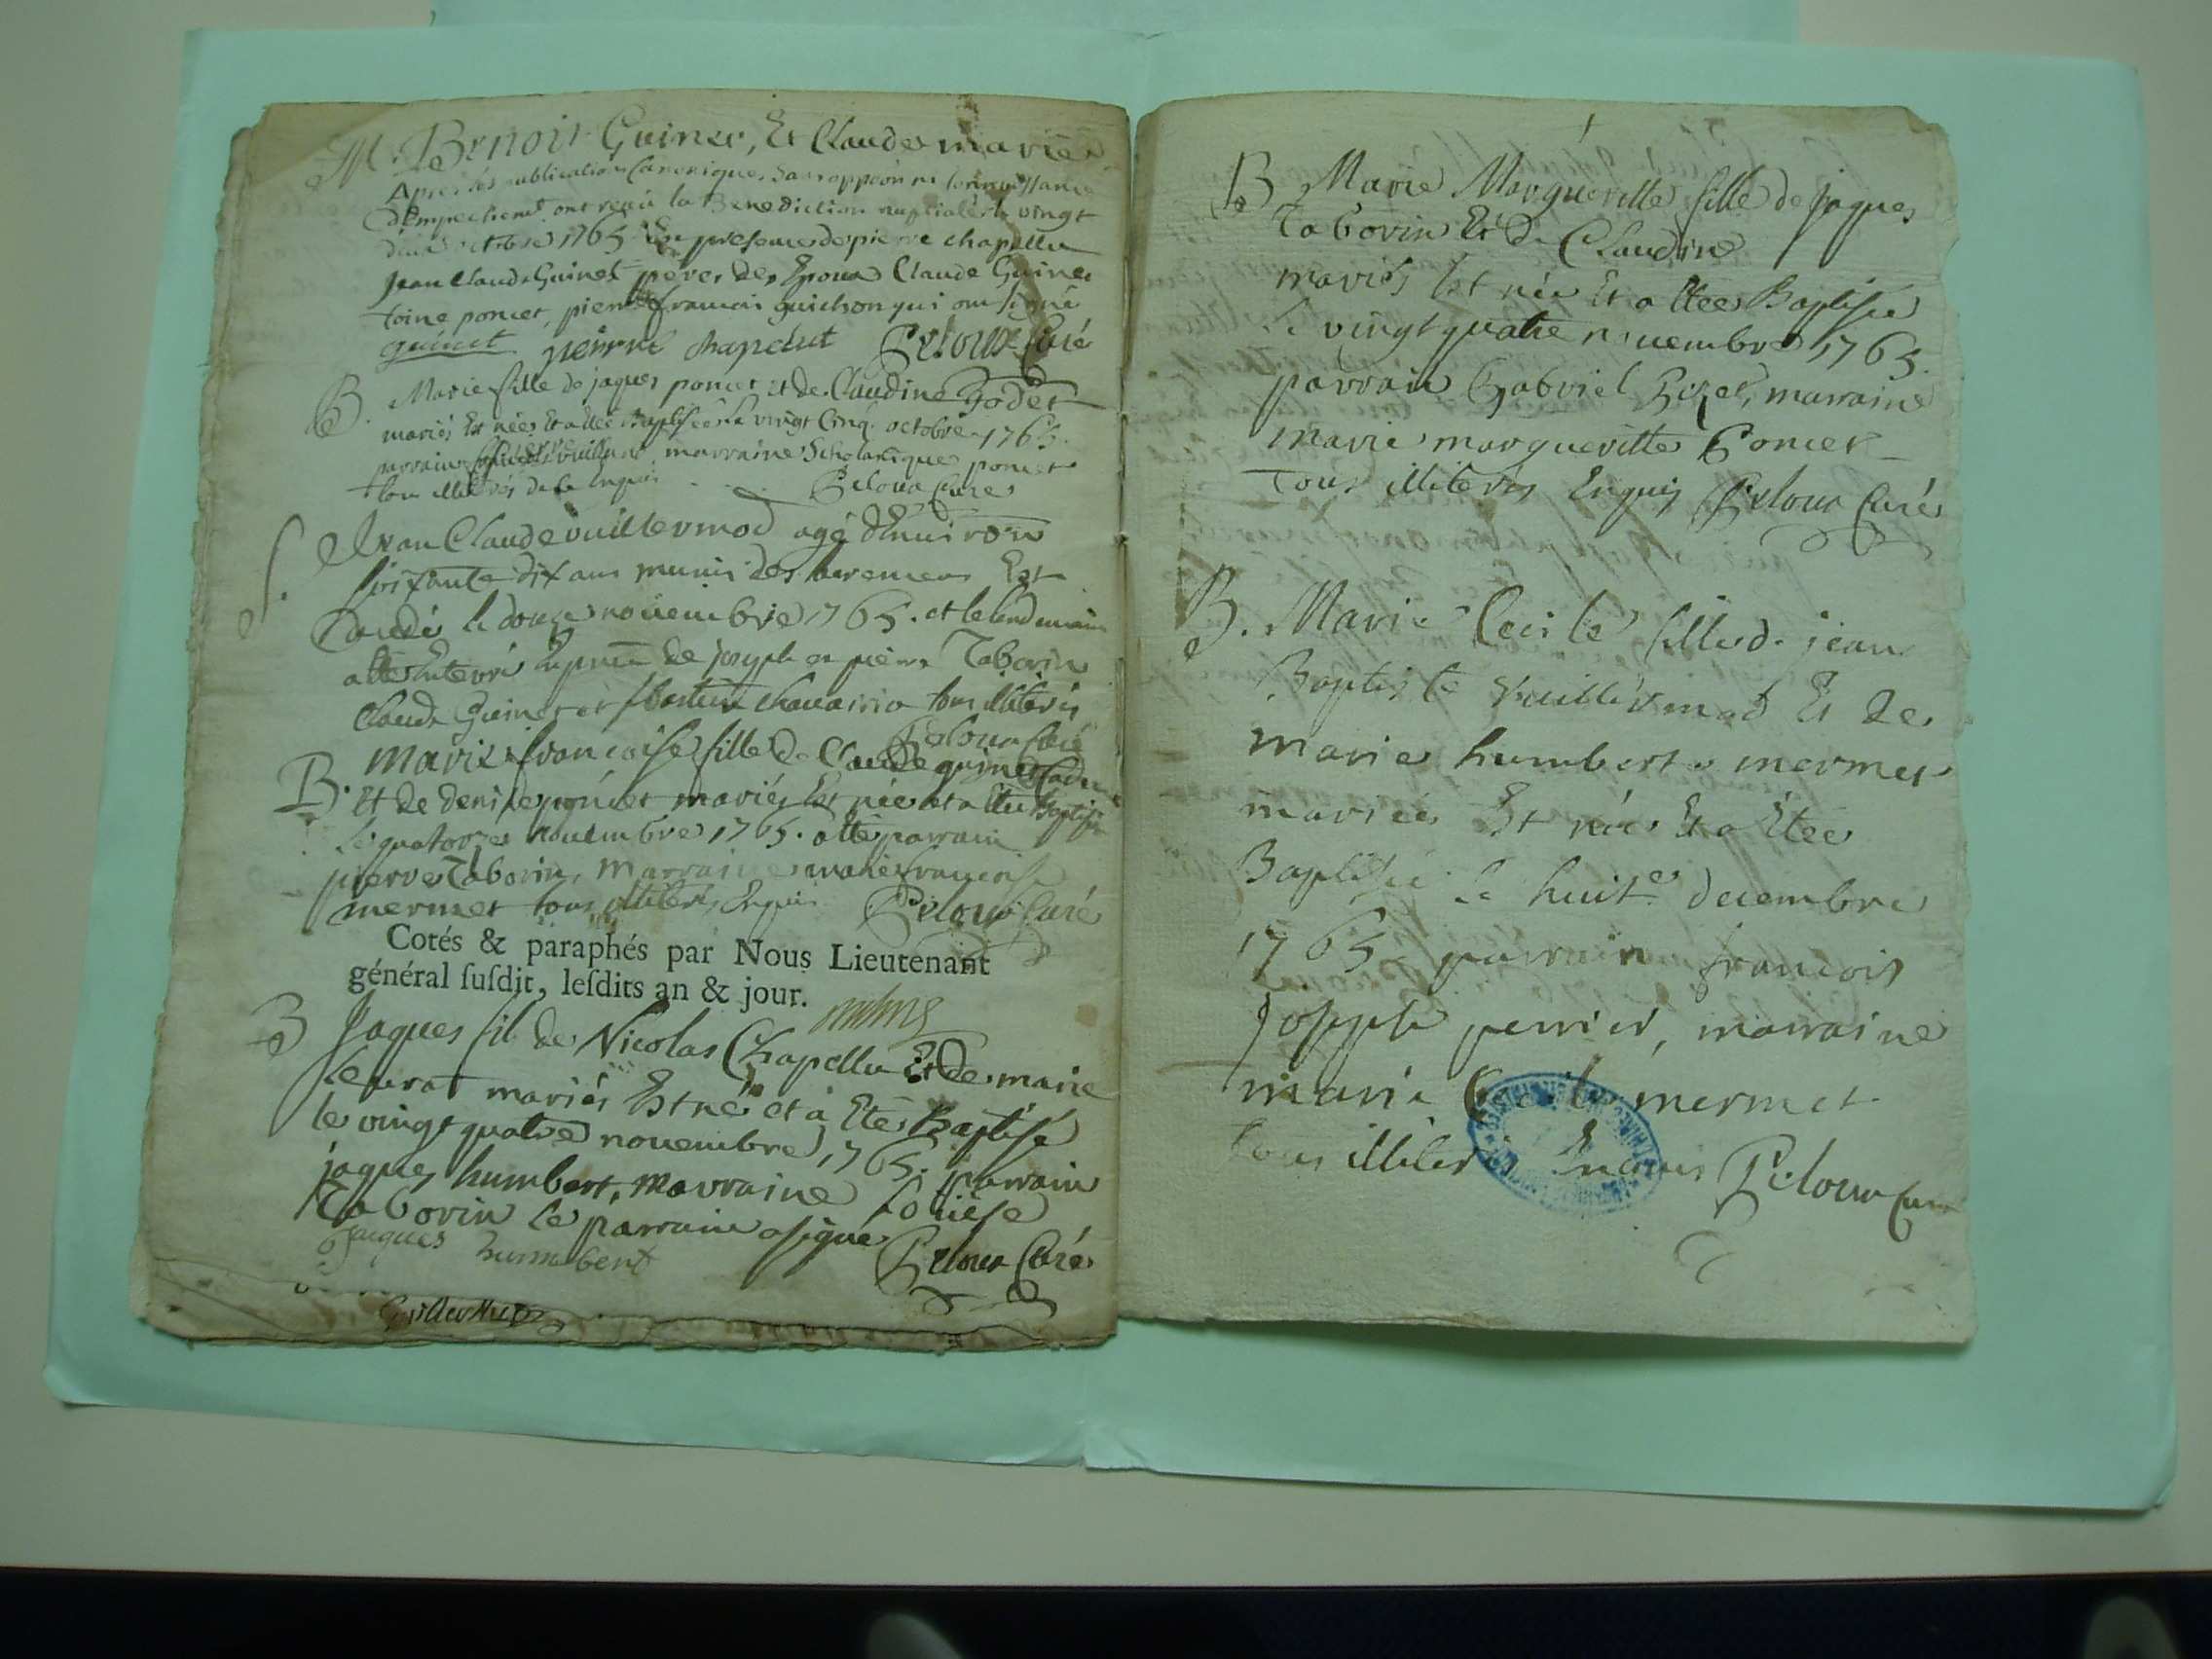 M. Benoit Guinet, Et Claude marie
Apres les publications Canoniques Sans oppõon ni
d'Empechemt ont reçu la Benediction nuptiale le vingt
deux octobre 1765 En presence de pierre chapellu
jean Claude Guinet peres des Epoux Claude Guinet
toine poncet, pierre francois guichon qui ont signé
guinet pierre chapelut Peloux Curé
B. Marie fille de jaques poncet et de Claudine godet
mariés Est née Et a Eté Baptisée Le vingt Cinq octobre 1765.
parrain marraine Scholastique poncet
tous illiterés de ce Enquis Peloux Curé
S. Jean Claude vuillermod agé d'Environ
soixante dix ans munis des sacremens Est
decedé le douze novembre 1765. et le lendemain
a Eté Enterré En pnce de joseph et pierre Taborin
Claude Guinet et chavairia tous illiterés
Peloux Curé
B. Marie francoise fille de Claude guinet Cadet
Et de denise poncet mariés Est née et a Eté Baptisée
Le quatorze novembre 1765. a Eté parrain
pierre Taborin, Marraine marie francoise
mermet tous illiteré, Enquis Peloux Curé
Cotés & paraphés par Nous Lieutenant
général ſuſdit, leſdits an & jour.
B Jaques fil de Nicolas Chapellu Et de marie
mariés Est né et a Eté Baptisé
le vingt quatre novembre 1765. parrain
jaques humbert, marraine Louise
Taborin le parrain a signé
jaques humbert Peloux Curé
B Marie Margueritte fille de jaques
Taborin Et de Claudine
mariés Est née Et a Etee Baptisée
Le vingt quatre novembre 1765.
parrain Gabriel marraine
marie margueritte Poncet
Tous illiterés Enquis Peloux Curé
B. Marie Cecile fille de jean
Baptiste Vuillermod Et de
marie humbert mermet
mariés Est née Et a Etée
Baptisée Le huite decembre
1765 parrain francois
joseph perrier, marraine
marie Cecile mermet
tous illiterés Enquis Peloux Curé